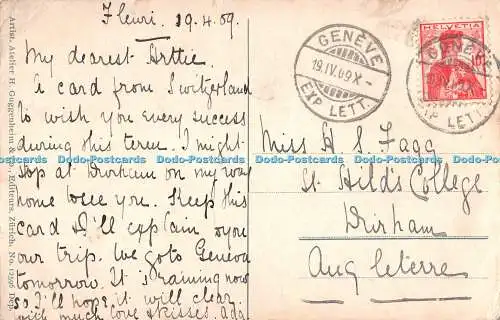 Fleuri. 19.4.09.
My dearest Arttie.
A card from Switzerland
to wish you every success
during this term. I might
stop at Durham on my way
home to see you. Keep this
card & I'll explain you
our trip. We go to Geneva
tomorrow. It is raining now
so I'll hope it will clear.
with much love & kisses. Ada
GENÈVE
19.IV.09.X-
EXP. LETT.
HELVETIA
10
GENÈVE
EXP. LETT.
Miss H S. Fagg
St Hild's College
Durham
Angleterre
Artist. Atelier H. Guggenheim & Co., Editeurs, Zürich. No. 12596 Dep.
Dodo-Postcards Dodo-Postcards Dodo-Postcards Dodo-Postcards Dodo-Postcards
Dodo-Postcards Dodo-Postcards Dodo-Postcards Dodo-Postcards Dodo-Postcards